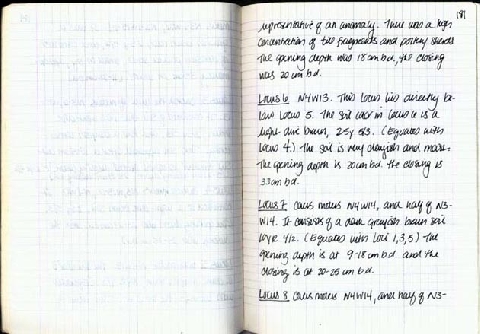 181
representative of an anomaly. There was a high
concentration of tile fragments and pottery sherds
The opening depth was 18 cm bd, the closing
was 20 cm bd.
Locus 6 N4W13. This locus lies directly be-
low Locus 5. The soil color in Locus 6 is a
light olive brown, 2.5y 5/3. (Equates with
Locus 4.) The soil is very clayish and moist.
The opening depth is 20cm bd. the closing is
33cm bd.
Locus 7 N4W14, and half of N3-
W14. It consists of a dark grayish brown soil
10YR 4/2. (Equates with Loci 1, 3, 5) The
opening depth is at 9-18 cm bd and the
closing is at 20-25 cm bd.
Locus 8 N4W14, and half of N3-